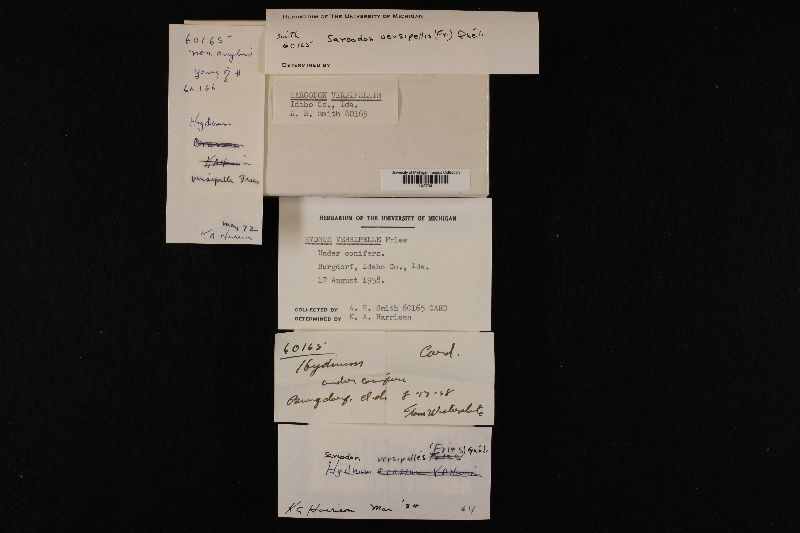 HERBARIUM OF THE UNIVERSITY OF MICHIGAN
Smith
60165
Sarcodon versipellis (Fr.) Quél.
DETERMINED BY
SARCODON VERSIPELLIS
Idaho Co., Ida.
A. H. Smith 60165
University of Michigan Fungus Collection
60165
young of #
60166
Hydnum
versipelle Fries
May 72
KA Harrison
HERBARIUM OF THE UNIVERSITY OF MICHIGAN
HYDNUM VERSIPELLE Fries
Under conifers.
Burgdorf, Idaho Co., Ida.
17 August 1958.
COLLECTED BY A. H. Smith 60165 CARD
DETERMINED BY K. A. Harrison
60165
Card.
Hydnum
under conifers
Burgdorf, Ida 8-17-58
Sarcodon versipellis (Fries) Quél.
Hydnum
KA Harrison Mar
64